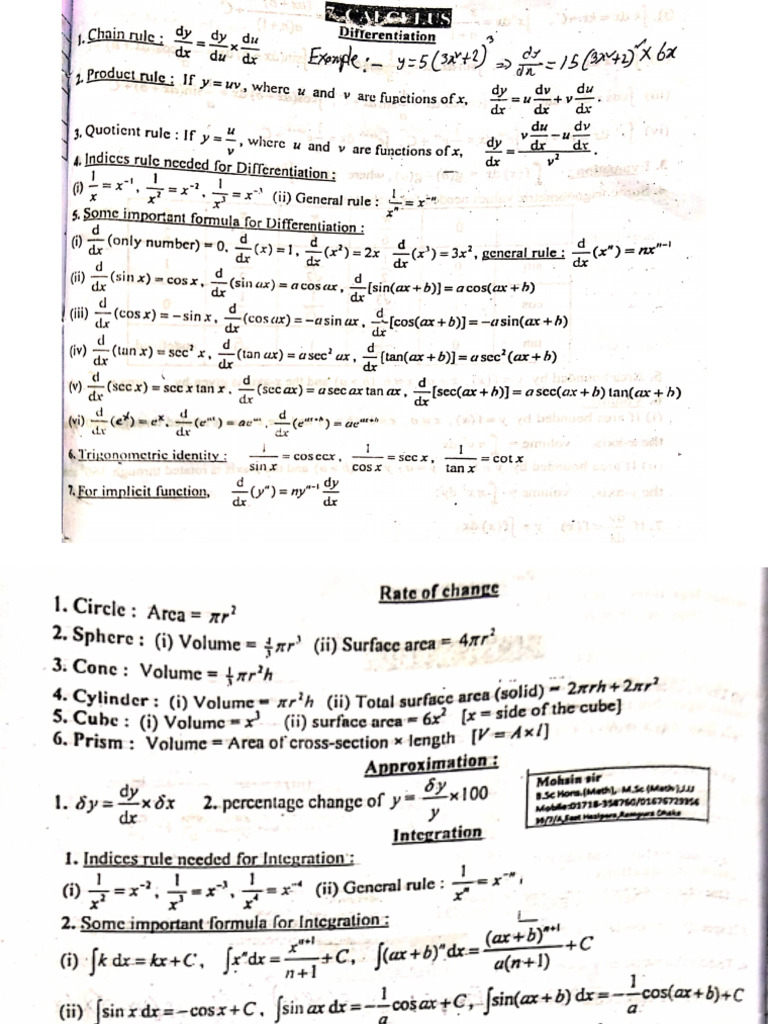 7. CALCULUS
Differentiation
1. Chain rule : dy/dx = dy/du × du/dx
Example:- y = 5(3x²+2)³ ⇒ dy/dx = 15(3x²+2)² × 6x
2. Product rule : If y = uv, where u and v are functions of x, dy/dx = u dv/dx + v du/dx.
3. Quotient rule : If y = u/v, where u and v are functions of x, dy/dx = (v du/dx − u dv/dx)/v².
4. Indices rule needed for Differentiation :
(i) 1/x = x⁻¹, 1/x² = x⁻², 1/x³ = x⁻³ (ii) General rule : 1/xⁿ = x⁻ⁿ
5. Some important formula for Differentiation :
(i) d/dx (only number) = 0, d/dx (x) = 1, d/dx (x²) = 2x d/dx (x³) = 3x², general rule : d/dx (xⁿ) = nxⁿ⁻¹
(ii) d/dx (sin x) = cos x, d/dx (sin ax) = a cos ax, d/dx [sin(ax + b)] = a cos(ax + b)
(iii) d/dx (cos x) = −sin x, d/dx (cos ax) = −a sin ax, d/dx [cos(ax + b)] = −a sin(ax + b)
(iv) d/dx (tan x) = sec² x, d/dx (tan ax) = a sec² ax, d/dx [tan(ax + b)] = a sec² (ax + b)
(v) d/dx (sec x) = sec x tan x, d/dx (sec ax) = a sec ax tan ax, d/dx [sec(ax + b)] = a sec(ax + b) tan(ax + b)
(vi) d/dx (eˣ) = eˣ, d/dx (eᵃˣ) = aeᵃˣ, d/dx (eᵃˣ⁺ᵇ) = aeᵃˣ⁺ᵇ
6. Trigonometric identity : 1/sin x = cosec x, 1/cos x = sec x, 1/tan x = cot x
7. For implicit function, d/dx (yⁿ) = nyⁿ⁻¹ dy/dx
Rate of change
1. Circle : Area = πr²
2. Sphere : (i) Volume = 4/3 πr³ (ii) Surface area = 4πr²
3. Cone : Volume = 1/3 πr²h
4. Cylinder : (i) Volume = πr²h (ii) Total surface area (solid) = 2πrh + 2πr²
5. Cube : (i) Volume = x³ (ii) surface area = 6x² [x = side of the cube]
6. Prism : Volume = Area of cross-section × length [V = A×l]
Approximation :
1. δy = dy/dx × δx 2. percentage change of y = δy/y × 100
Mohsin sir
B.Sc Hons.(Math), M.Sc (Math),JJJ
Integration
1. Indices rule needed for Integration :
(i) 1/x² = x⁻², 1/x³ = x⁻³, 1/x⁴ = x⁻⁴ (ii) General rule : 1/xⁿ = x⁻ⁿ,
2. Some important formula for Integration :
(i) ∫k dx = kx + C, ∫xⁿdx = xⁿ⁺¹/(n+1) + C, ∫(ax+b)ⁿdx = (ax+b)ⁿ⁺¹/a(n+1) + C
(ii) ∫sin x dx = −cos x + C, ∫sin ax dx = −1/a cos ax + C, ∫sin(ax + b) dx = −1/a cos(ax + b) + C